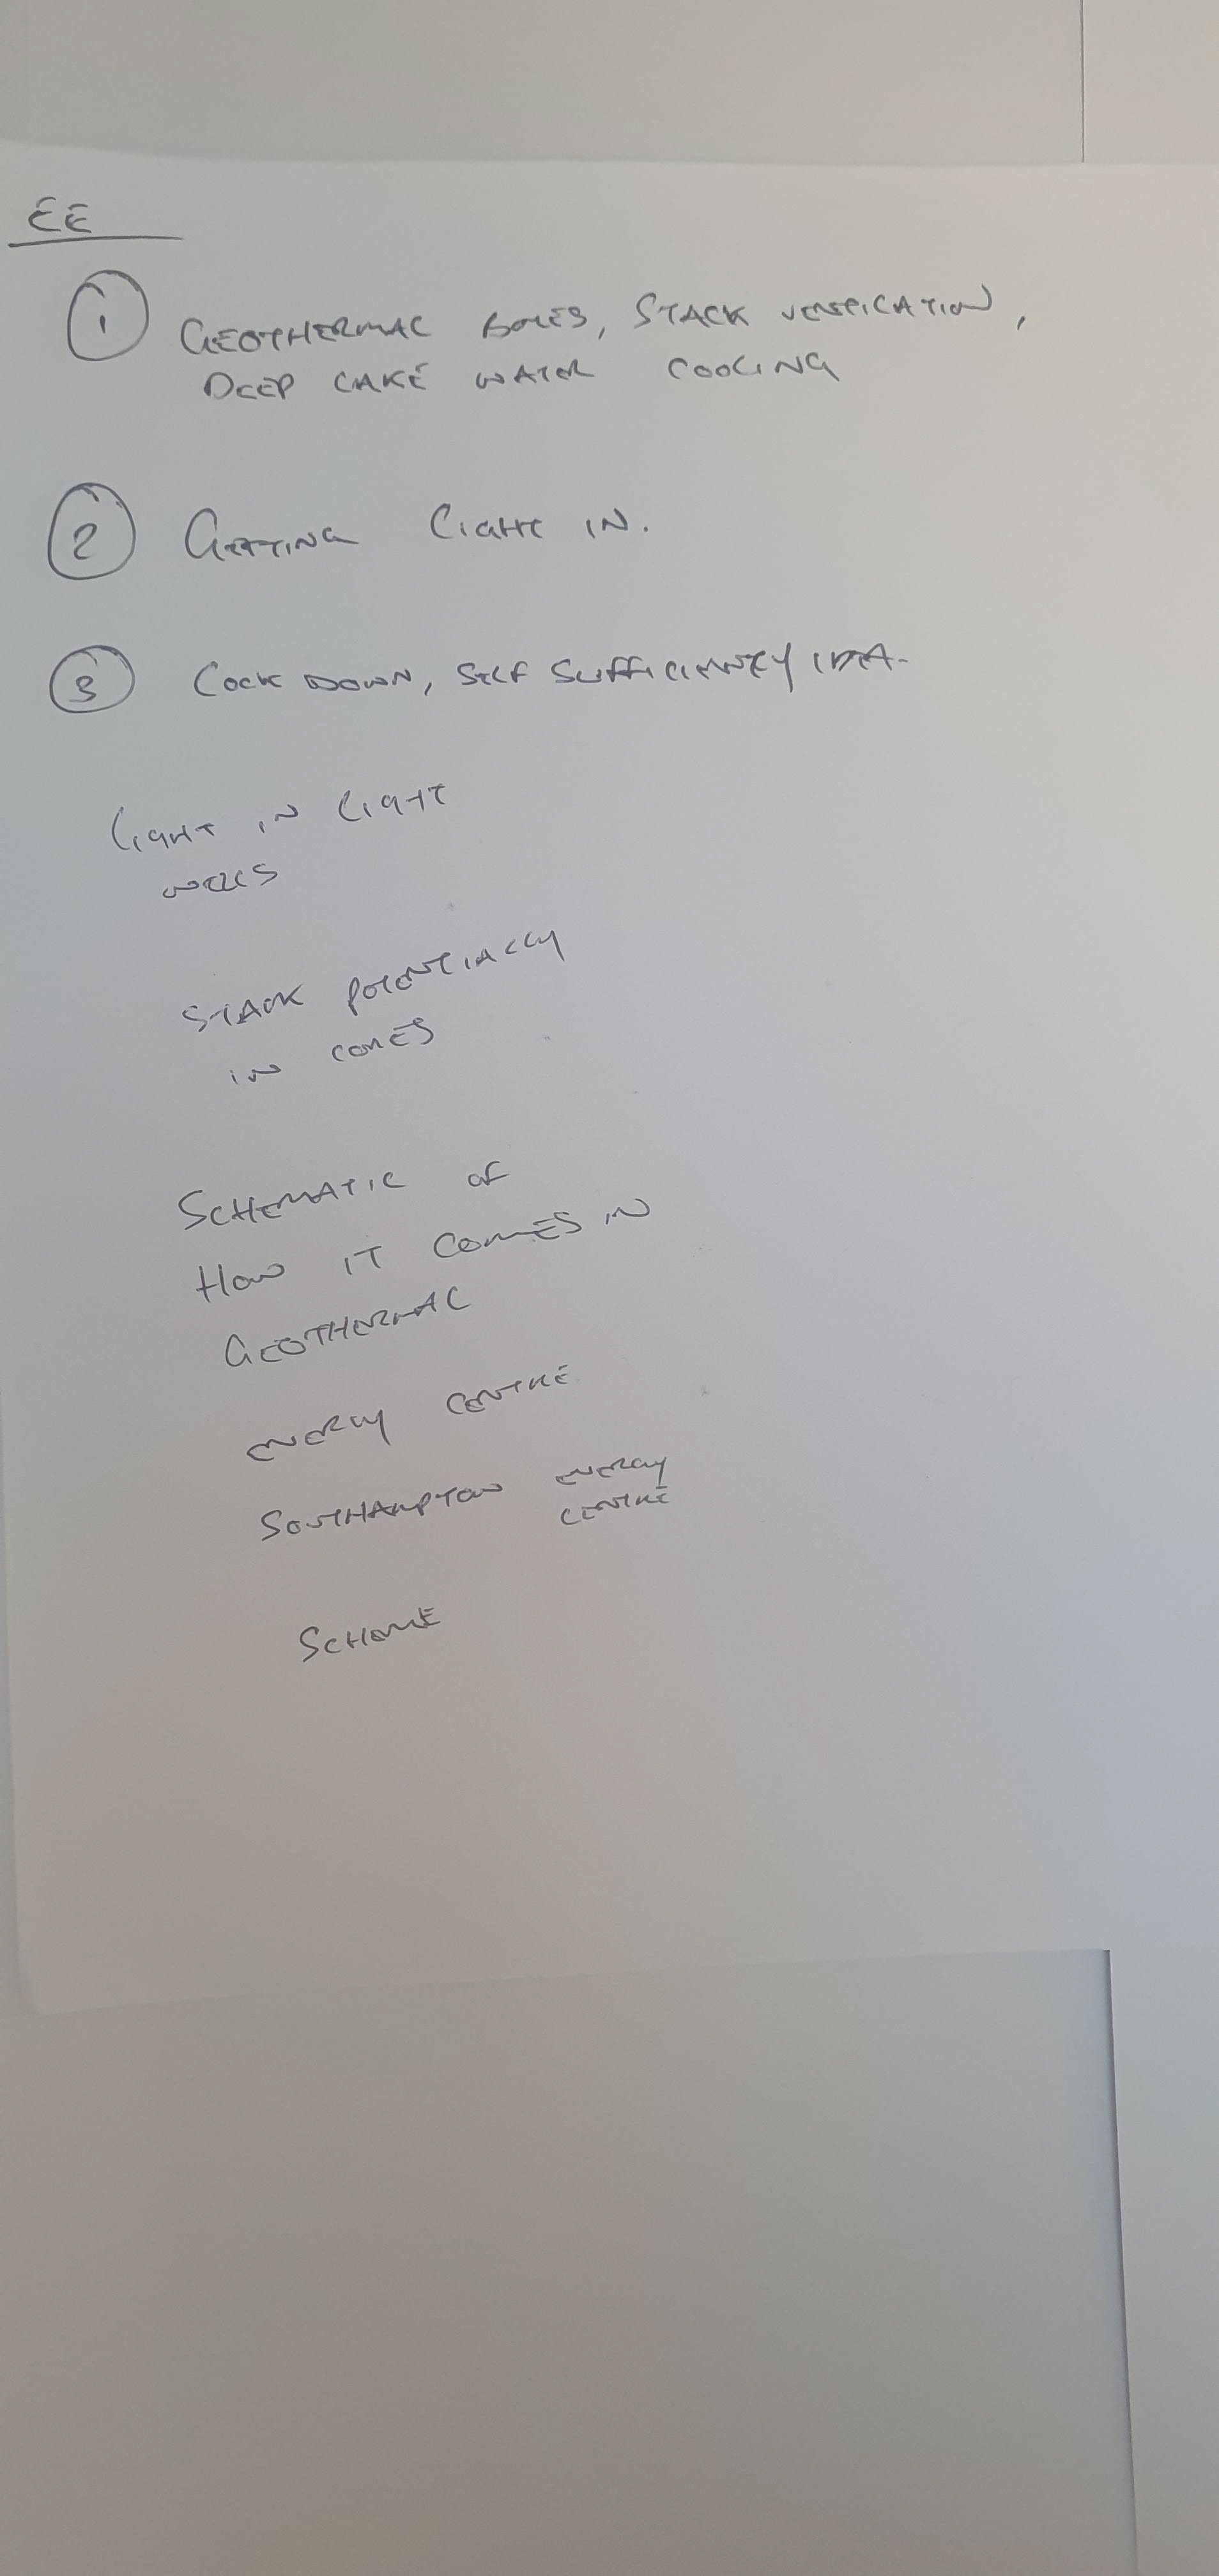 EE
① GEOTHERMAL BORES, STACK VENTILATION,
DEEP LAKE WATER COOLING
② GETTING LIGHT IN.
③ LOCK DOWN, SELF SUFFICIENCY IDEA.
LIGHT IN LIGHT
WELLS
STACK POTENTIALLY
IN CORES
SCHEMATIC OF
HOW IT COMES IN
GEOTHERMAL
ENERGY CENTRE
SOUTHAMPTON ENERGY
CENTRE
SCHEME